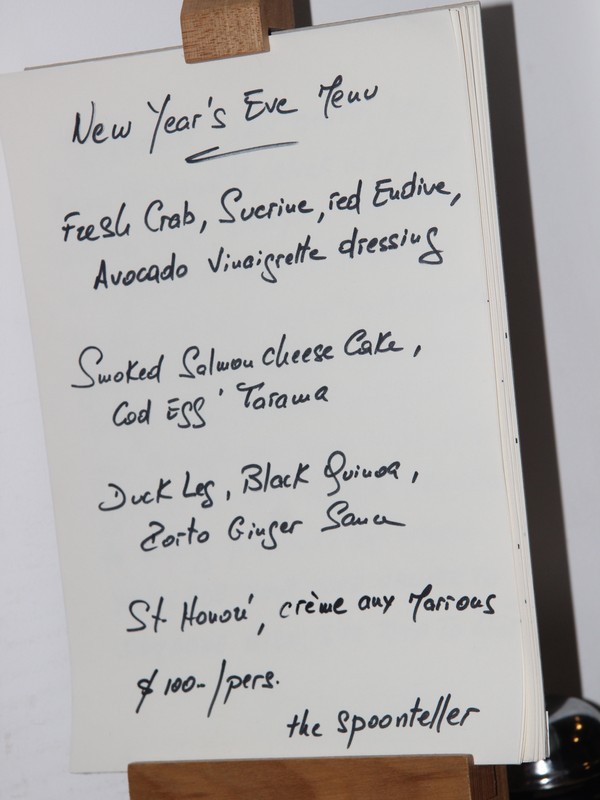 New Year's Eve Menu
Fresh Crab, Sucrine, red Endive,
Avocado Vinaigrette dressing
Smoked Salmon Cheese Cake,
Cod Egg ' Tarama
Duck Leg, Black Quinoa,
Porto Ginger Sauce
St Honoré, crème aux Marrons
$ 100.-/pers.
the spoonteller